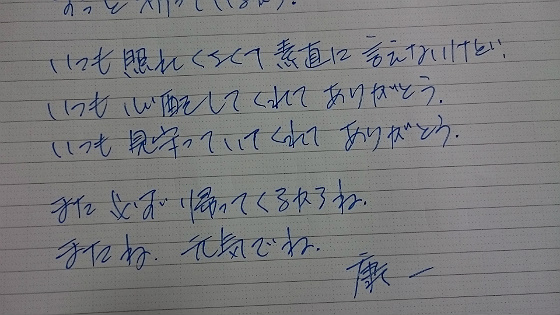 いつも照れくさくて素直に言えないけど、
いつも心配してくれてありがとう。
いつも見守っていてくれてありがとう。
また必ず帰ってくるからね。
またね。元気でね。
康一